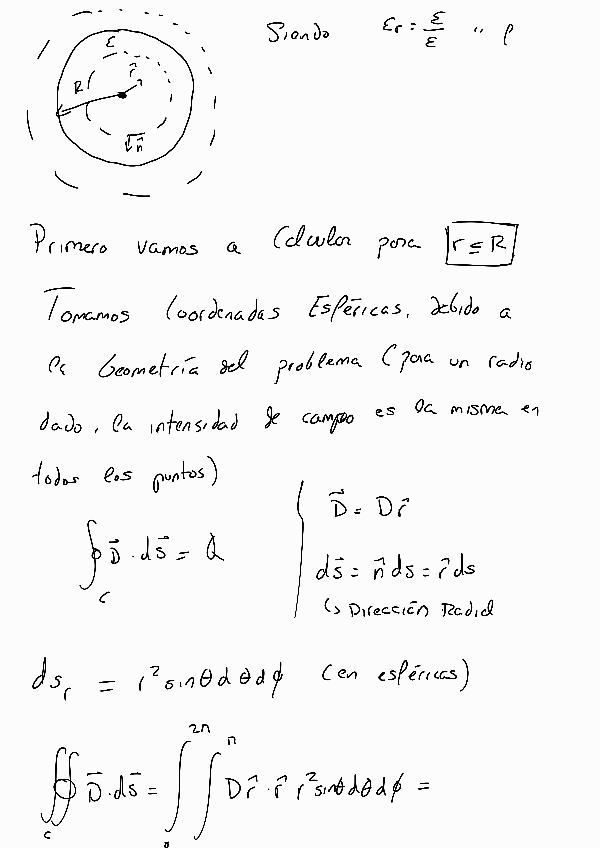 ε
R
r̂
n̂
Siendo εr = ε/ε " ρ
Primero vamos a Calcular para r ≤ R
Tomamos Coordenadas Esféricas, debido a
la Geometría del problema (para un radio
dado, la intensidad de campo es la misma en
todos los puntos)
∮c D⃗ · ds⃗ = Q
D⃗ = D r̂
ds⃗ = n̂ ds = r̂ ds
↳ Dirección Radial
dsr = r² sinθ dθ dϕ (en esféricas)
∯c D⃗ · ds⃗ = ∫₀^2π ∫^π D r̂ · r̂ r² sinθ dθ dϕ =